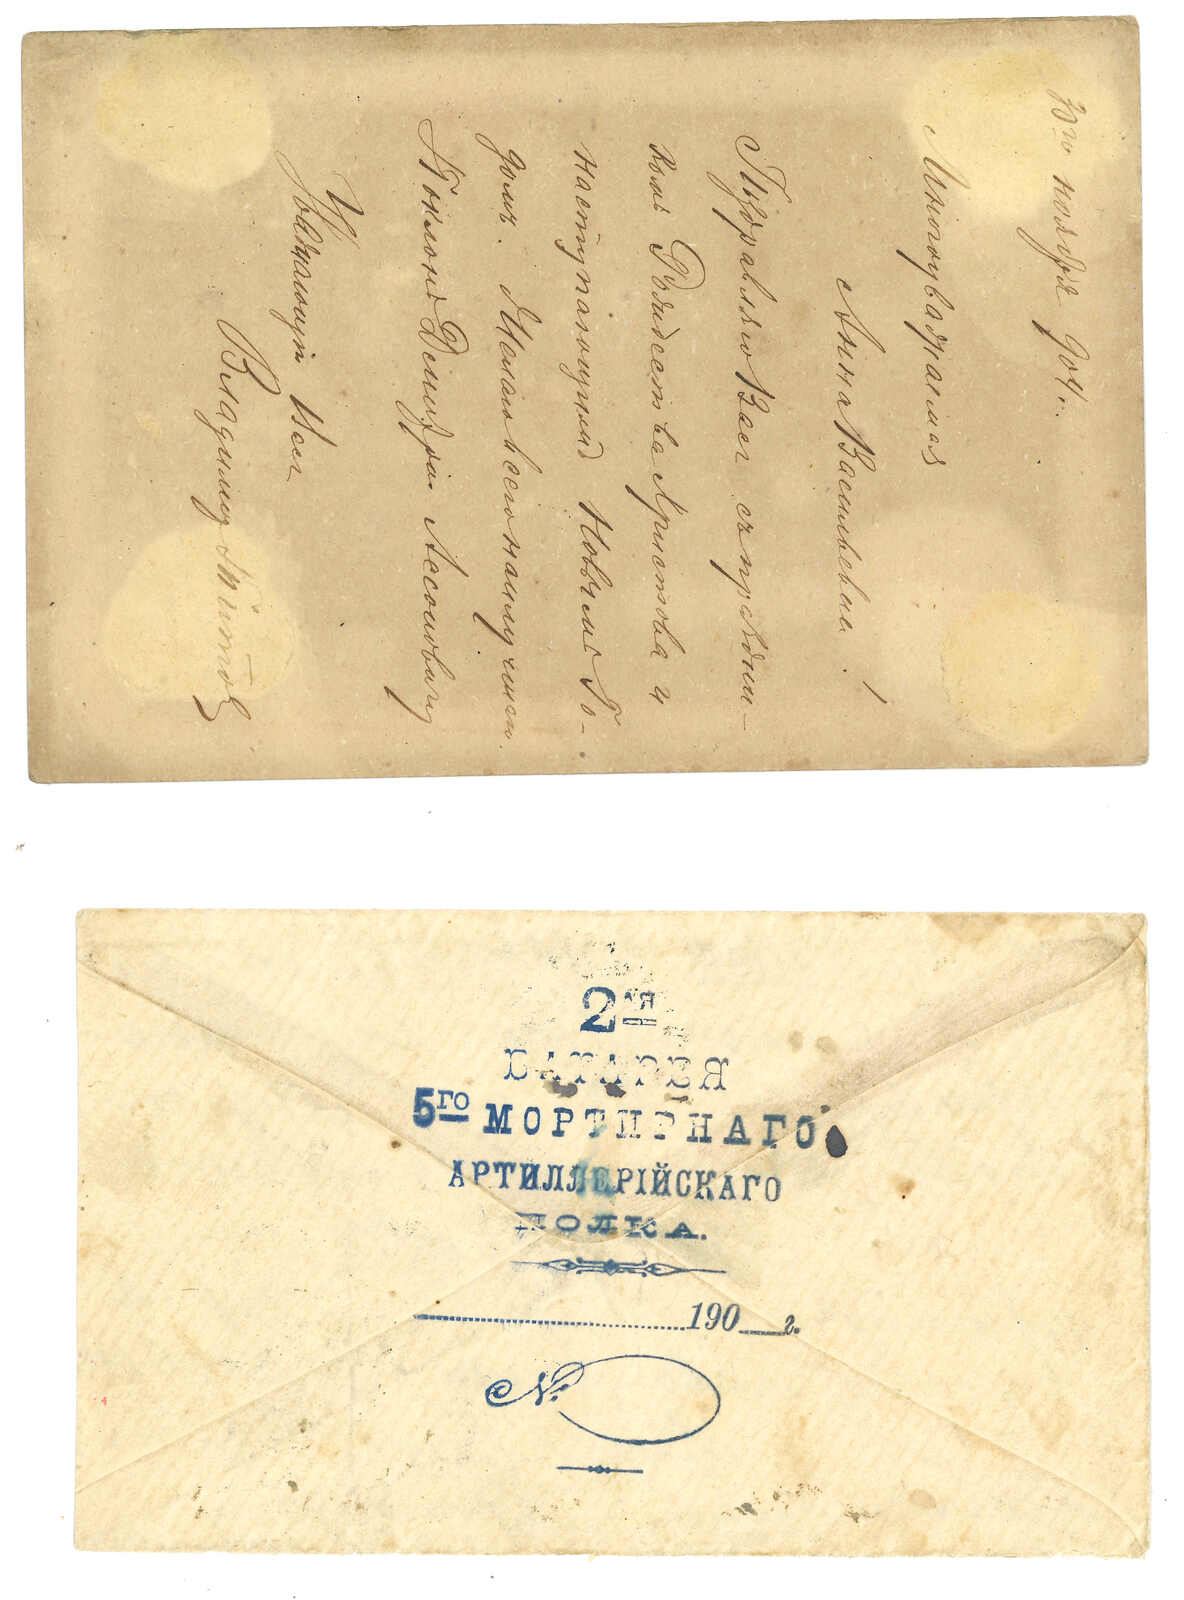 30го ноября 904г.
Многоуважаемая
Анна Васильевна!
Поздравляю Васъ съ праздни-
комъ Рождества Христова и
наступающимъ Новымъ Го-
домъ. Желаю всего наилучшаго.
Поклонъ
Уважающій Васъ
Владимир
2ая
БАТАРЕЯ
5го МОРТИРНАГО
АРТИЛЛЕРІЙСКАГО
ПОЛКА.
190 г.
№